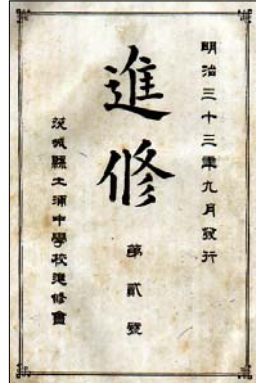 明治三十三年九月發行
進修
第貳號
茨城縣土浦中學校進修會